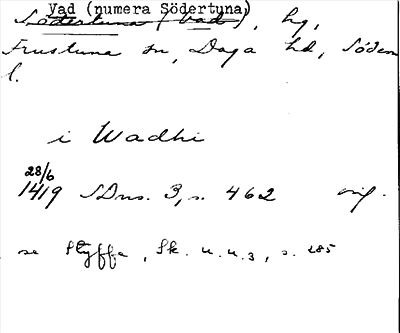 Vad (numera Södertuna)
Södertuna (Vad), hg,
Frustuna sn, Daga hd, Södem
l.
i Wadhi
28/6
1419 SDns. 3, s. 462 orig.
se Styffe, Sk. u. u. 3, s. 285